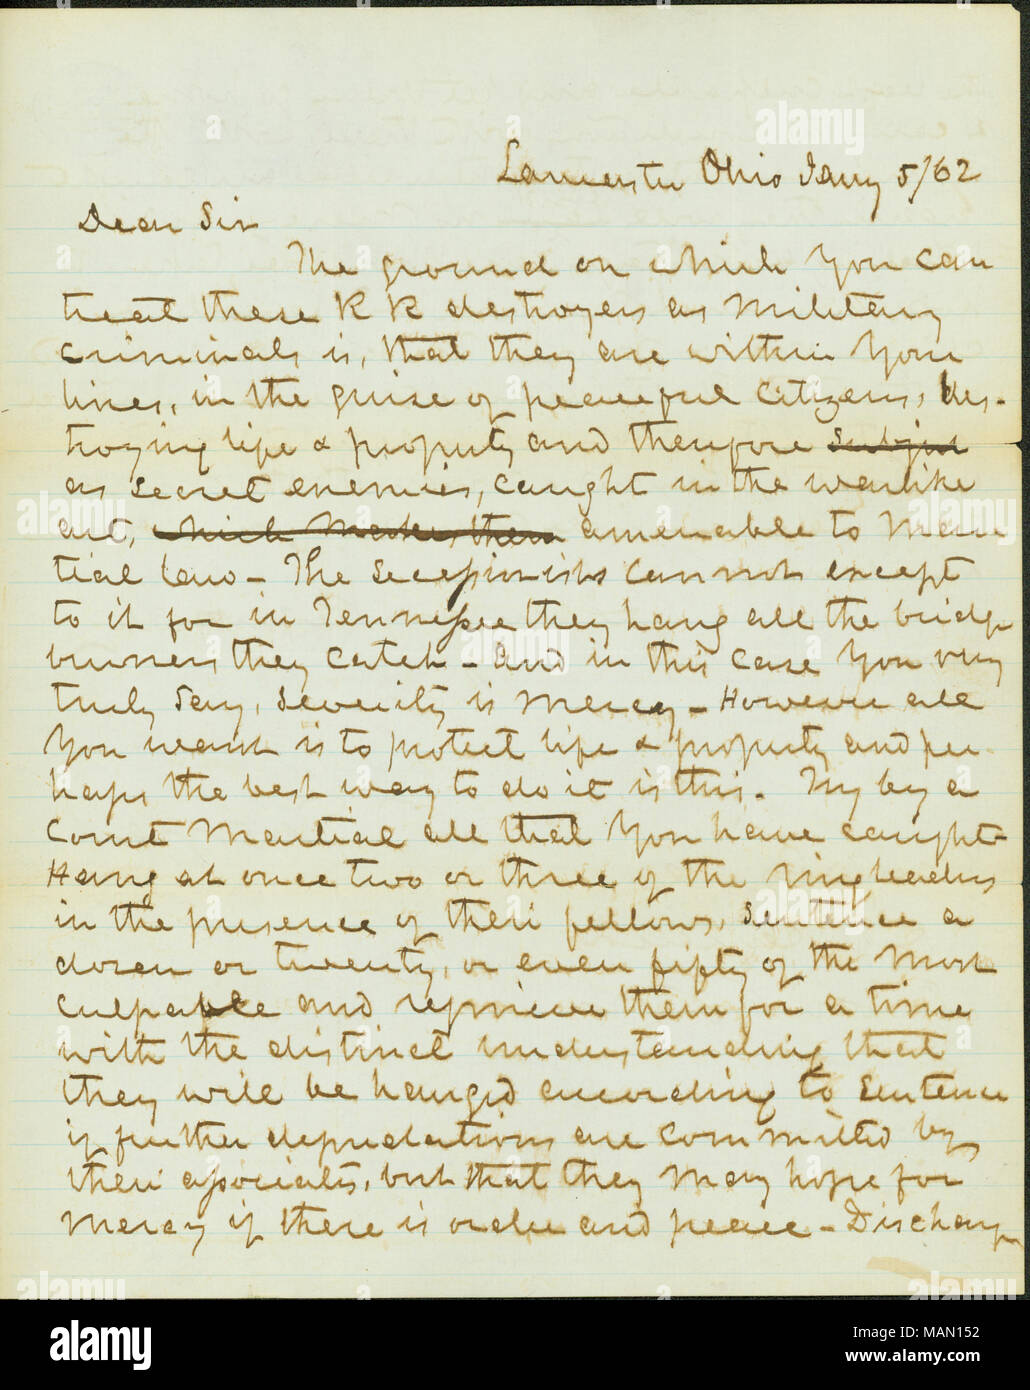 Lancaster Ohio Jany 5/62
Dear Sir
The ground on which You can
treat these R R destroyers as Military
criminals is, that they are within Your
lines, in the guise of peaceful Citizens, des-
troying life & property and therefore subject
as secret enemies, caught in the warlike
act, which makes them amenable to Mar
tial law - The Secessionists cannot except
to it for in Tennessee they hang all the bridge
burners they catch - and in this case You very
truly say, severity is Mercy - However all
You want is to protect life & property and per-
haps the best way to do it is this. Try by a
Court Martial all that You have caught -
Hang at once two or three of the ringleaders
in the presence of their fellows, Sentence a
dozen or twenty, or even fifty of the Most
culpable and reprieve them for a time
with the distinct understanding that
they will be hanged according to Sentence
if further depredations are committed by
their associates, but that they May hope for
Mercy if there is order and peace - Discharge
alamy
alamy stock photo
MAN152
www.alamy.com